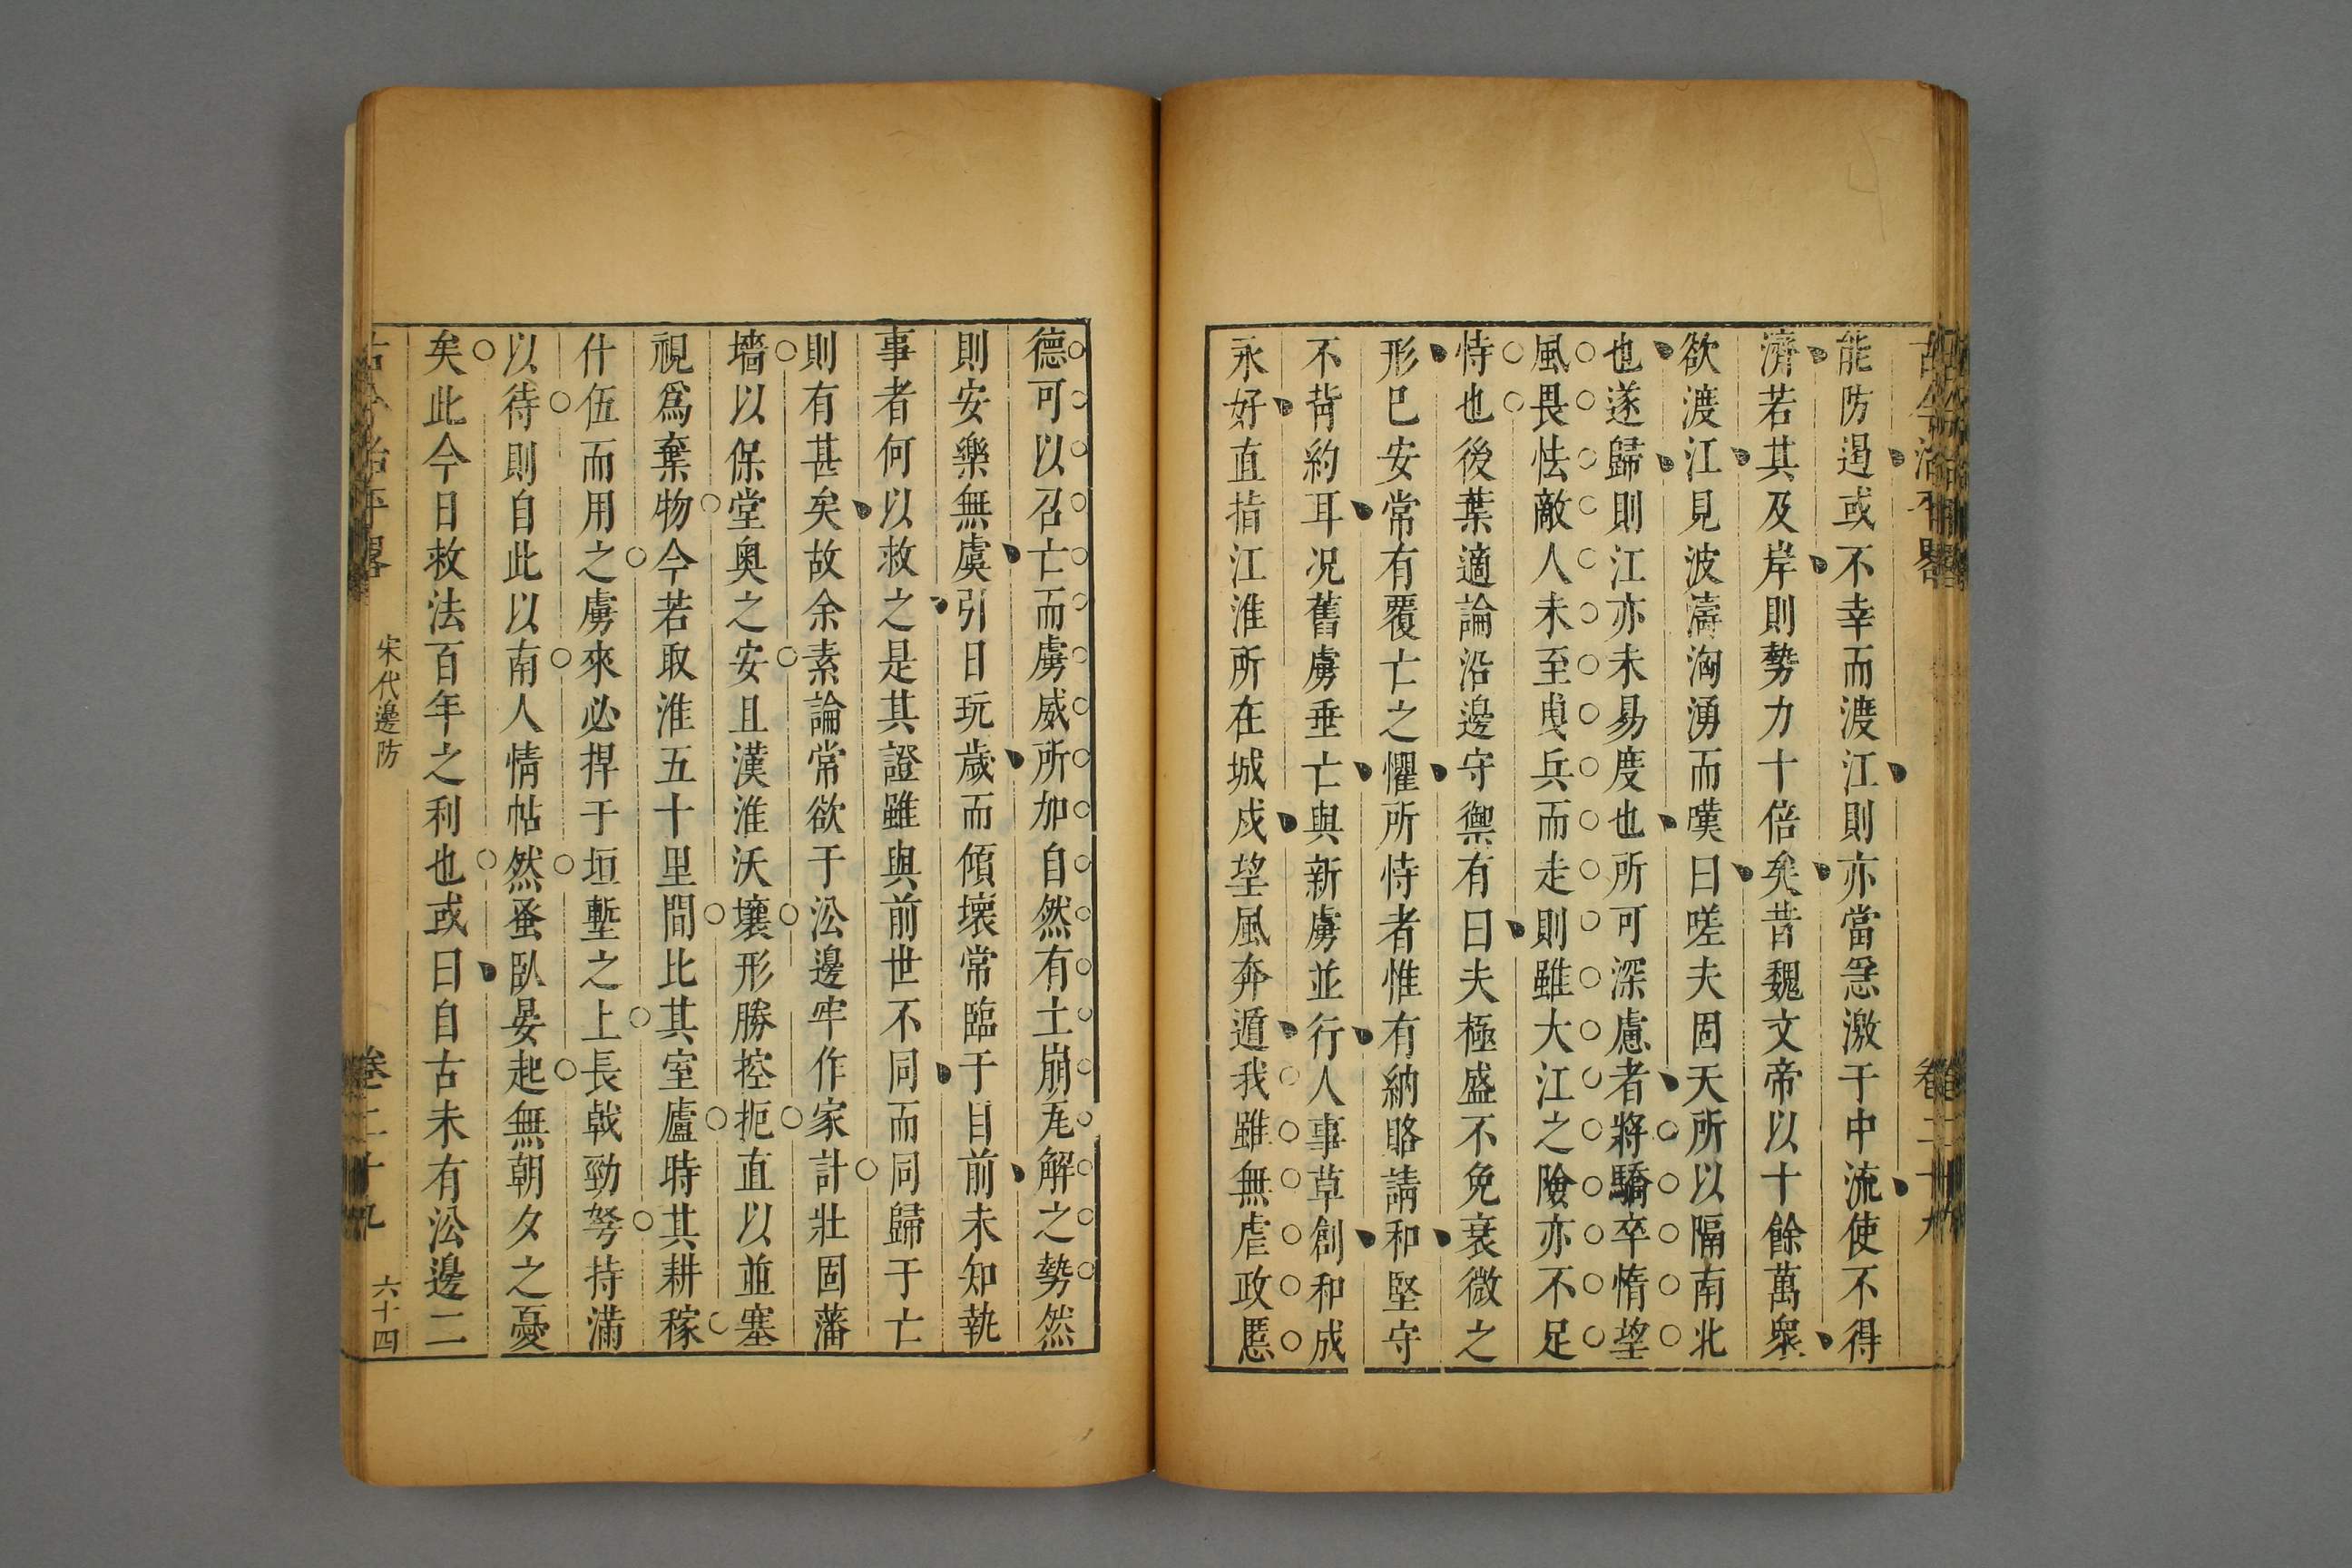 古今治平畧
卷二十九
能防遏或不幸而渡江則亦當急激于中流使不得
濟若其及岸則勢力十倍矣昔魏文帝以十餘萬衆
欲渡江見波濤洶湧而嘆曰嗟夫固天所以隔南北
也遂歸則江亦未易度也所可深慮者將驕卒惰望
風畏怯敵人未至曳兵而走則雖大江之險亦不足
恃也後葉適論沿邊守禦有曰夫極盛不免衰微之
形已安常有覆亡之懼所恃者惟有納賂請和堅守
不背約耳况舊虜垂亡與新虜並行人事草創和成
永好直指江淮所在城戍望風奔遁我雖無虐政慝
德可以召亡而虜威所加自然有土崩尾解之勢然
則安樂無虞引日玩歲而傾壞常臨于目前未知執
事者何以救之是其證雖與前世不同而同歸于亡
則有甚矣故余素論常欲于沿邊牢作家計壯固藩
墻以保堂奧之安且漢淮沃壤形勝控扼直以並塞
視爲棄物今若取淮五十里間比其室廬時其耕稼
什伍而用之虜來必捍于垣塹之上長戟勁弩持滿
以待則自此以南人情帖然蚤臥晏起無朝夕之憂
矣此今日救法百年之利也或曰自古未有沿邊二
古今治平畧
宋代邊防
卷二十九
六十四